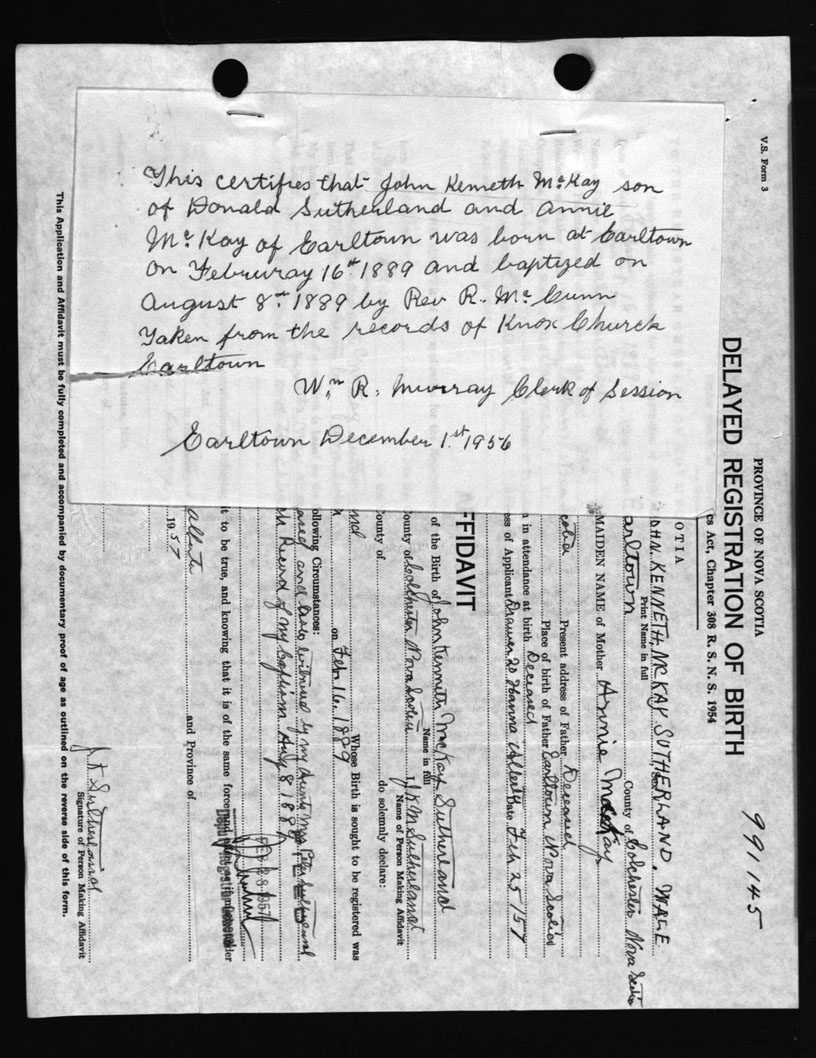 This certifies that John Kenneth McKay son
of Donald Sutherland and Annie
McKay of Earltown was born at Earltown
on Februray 16th 1889 and baptized on
August 8th 1889 by Rev R. McCunn
Taken from the records of Knox Church
Earltown
Wm R. Murray Clerk of Session
Earltown December 1st 1956
V.S. Form 3
991145
PROVINCE OF NOVA SCOTIA
DELAYED REGISTRATION OF BIRTH
cs Act, Chapter 308 R. S. N. S. 1954
OTIA
OHN. KENNETH. McKAY SUTHERLAND. MALE
Print Name in full
arltown County of Colchester Nova Scotia
MAIDEN NAME of Mother Annie MacKay
cotia Present address of Father Deceased
Place of birth of Father Earltown Nova Scotia
n in attendance at birth Deceased
ess of Applicant Drawer 20 Hanna Alberta Date Feb 25/57
FFIDAVIT
of the Birth of John Kenneth McKay Sutherland
Name in full
ounty of Colchester Nova Scotia I, J.K.M. Sutherland
Name of Person Making Affidavit
ounty of do solemnly declare:
Whose Birth is sought to be registered was
on Feb 16, 1889
ollowing Circumstances:
and also witnessed by my Aunt Mrs Peter Sutherland
Record of my Baptism Aug 8 1889
t to be true, and knowing that it is of the same force
FEB 28 1957
Alberta and Province of
1957
J K Sutherland
Signature of Person Making Affidavit
This Application and Affidavit must be fully completed and accompanied by documentary proof of age as outlined on the reverse side of this form.